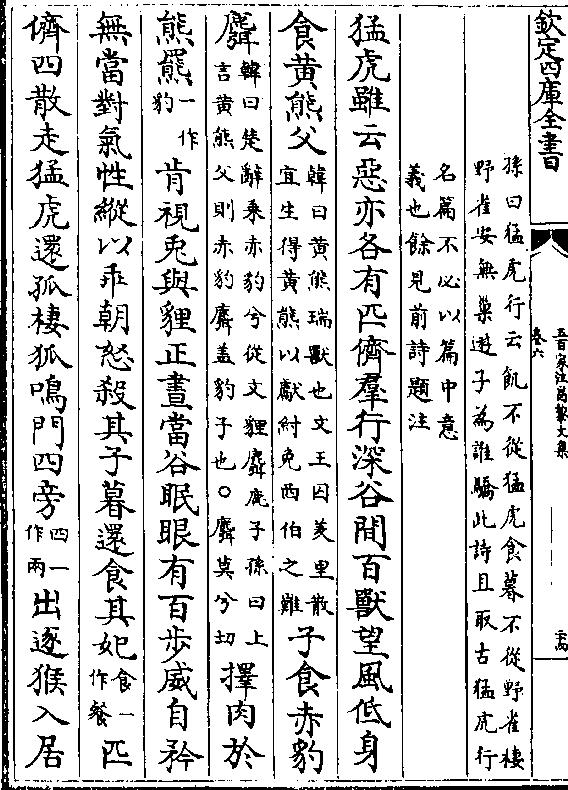 欽定四庫全書
五百家注昌黎文集
卷六
孫曰猛虎行云飢不從猛虎食暮不從野雀棲
野雀安無巢遊子為誰驕此詩且取古猛虎行
名篇不必以篇中意
義也餘見前詩題注
猛虎雖云惡亦各有匹儕羣行深谷間百獸望風低身
食黄熊父韓曰黄熊瑞獸也文王囚羑里散宜生得黄熊以獻紂免西伯之難子食赤豹
麛韓曰楚辭乘赤豹兮從文貍麛鹿子孫曰上言黄熊父則赤豹麛盖豹子也○麛莫兮切擇肉於
熊羆一作豹肯視兎與貍正晝當谷眠眼有百步威自矜
無當對氣性縱以乖朝怒殺其子暮還食其妃食一作餐匹
儕四散走猛虎還孤棲狐鳴門四旁四一作兩出逐猴入居